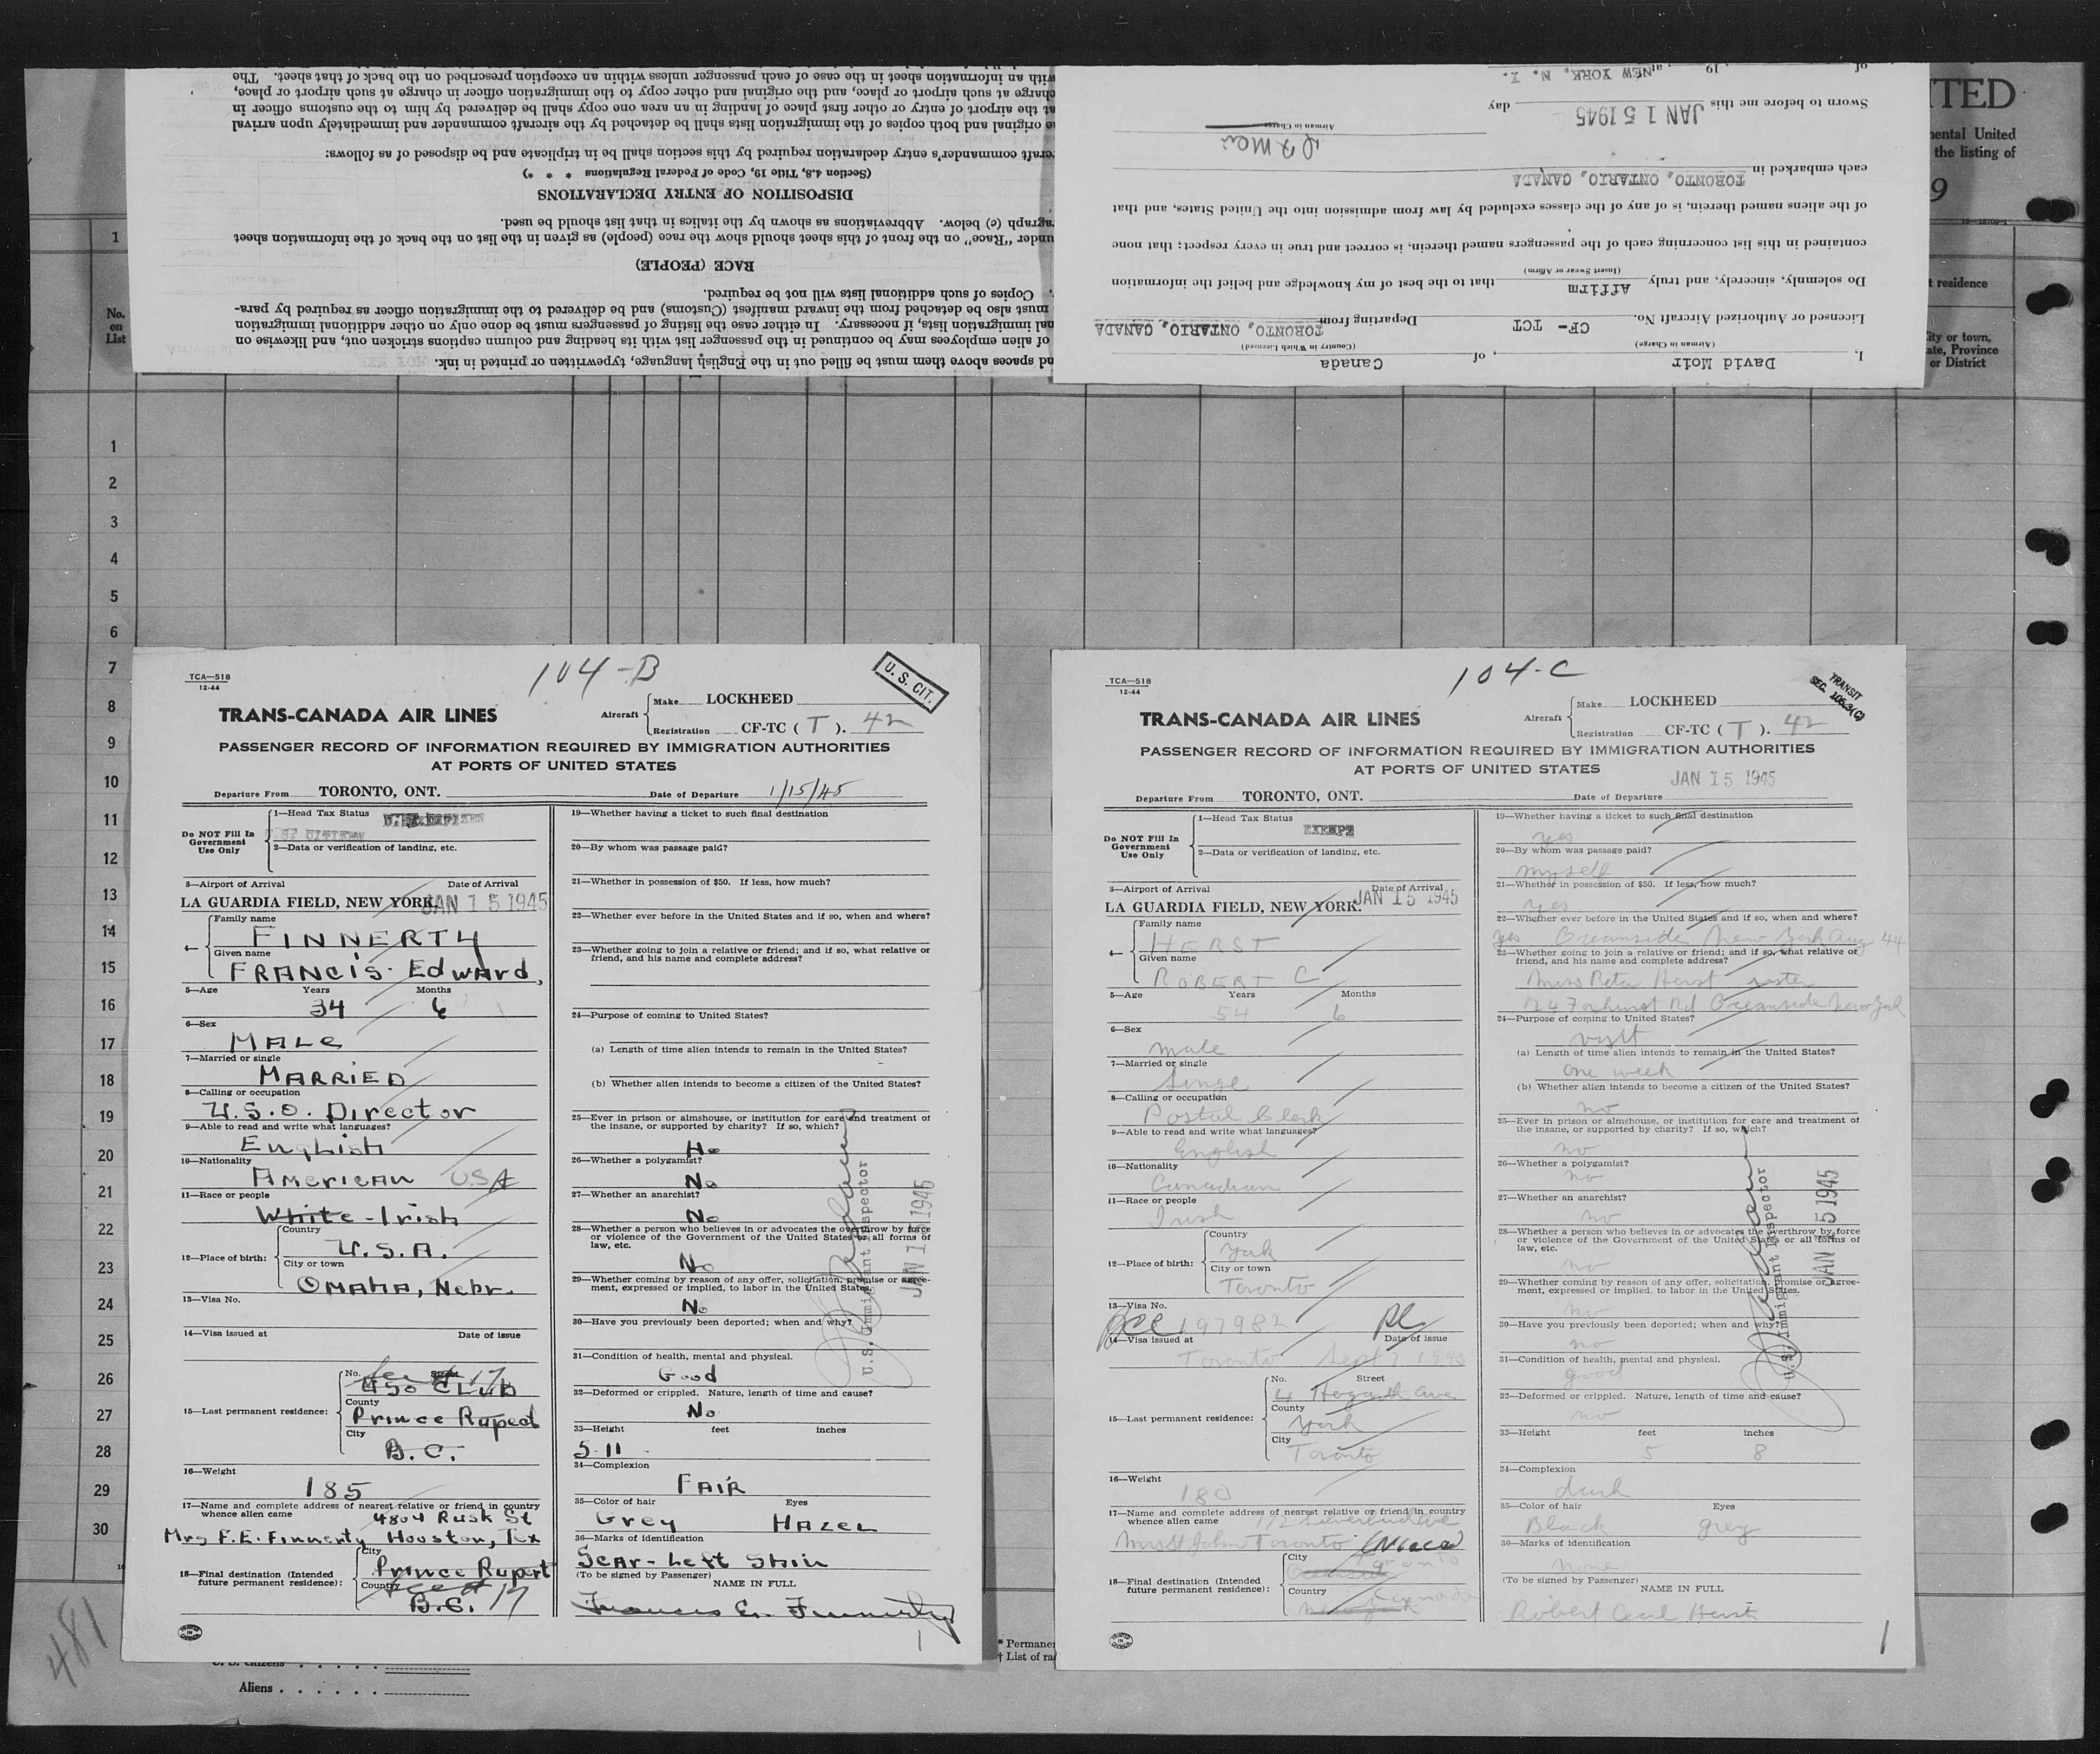 with an information sheet in the case of each passenger unless within an exception prescribed on the back of that sheet. The
charge at such airport or place, and the original and other copy to the immigration officer in charge at such airport or place,
at the airport of entry or other first place of landing in an area one copy shall be delivered by him to the customs officer in
original and both copies of the immigration lists shall be detached by the aircraft commander and immediately upon arrival
craft commander's entry declaration required by this section shall be in triplicate and be disposed of as follows:
(Section 4.8, Title 19, Code of Federal Regulations * * *)
DISPOSITION OF ENTRY DECLARATIONS
agraph (e) below. Abbreviations as shown by the italics in that list should be used.
under "Race" on the front of this sheet should show the race (people) as given in the list on the back of the information sheet
RACE (PEOPLE)
Copies of such additional lists will not be required.
must also be detached from the inward manifest (Customs) and be delivered to the immigration officer as required by para-
nal immigration lists, if necessary. In either case the listing of passengers must be done only on other additional immigration
of alien employees may be continued in the passenger list with its heading and column captions stricken out, and likewise on
nd spaces above them must be filled out in the English language, typewritten or printed in ink.
I, David Moir, of Canada
(Airman in Charge) (Country in Which Licensed)
Licensed or Authorized Aircraft No. CF- TCT Departing from TORONTO, ONTARIO, CANADA
Do solemnly, sincerely, and truly Affirm that to the best of my knowledge and belief the information
(Insert Swear or Affirm)
contained in this list concerning each of the passengers named therein, is correct and true in every respect; that none
of the aliens named therein, is of any of the classes excluded by law from admission into the United States, and that
each embarked in TORONTO, ONTARIO, CANADA
Airman in Charge
Sworn to before me this JAN 15 1945 day
of , 19 , at NEW YORK, N. Y.
ITED
nental United
the listing of
9
t residence
ity or town,
ate, Province
or District
1
No.
on
List
1
2
3
4
5
6
7
8
9
10
11
12
13
14
15
16
17
18
19
20
21
22
23
24
25
26
27
28
29
30
481
104-B
U. S. CIT.
TCA—518
12-44
TRANS-CANADA AIR LINES
Aircraft
Make LOCKHEED
Registration CF-TC ( T ). 42
PASSENGER RECORD OF INFORMATION REQUIRED BY IMMIGRATION AUTHORITIES
AT PORTS OF UNITED STATES
Departure From TORONTO, ONT. Date of Departure 1/15/45
Do NOT Fill In
Government
Use Only
1—Head Tax Status
U S CITIZEN
2—Data or verification of landing, etc.
3—Airport of Arrival Date of Arrival
LA GUARDIA FIELD, NEW YORK. JAN 15 1945
4—
Family name
FINNERTY
Given name
FRANCIS EDWARD,
5—Age Years Months
34 6
6—Sex
MALE
7—Married or single
MARRIED
8—Calling or occupation
U.S.O. Director
9—Able to read and write what languages?
English
10—Nationality
American USA
11—Race or people
White - Irish
12—Place of birth:
Country
U.S.A.
City or town
OMAHA, Nebr.
13—Visa No.
14—Visa issued at Date of issue
15—Last permanent residence:
No. Street
USO CLUB
County
Prince Rupert
City
B.C.
16—Weight
185
17—Name and complete address of nearest relative or friend in country
whence alien came 4804 Rusk St
Mrs F.E. Finnerty Houston, Tex
18—Final destination (Intended
future permanent residence):
City
Prince Rupert
Country
B.C. 17
19—Whether having a ticket to such final destination
20—By whom was passage paid?
21—Whether in possession of $50. If less, how much?
22—Whether ever before in the United States and if so, when and where?
23—Whether going to join a relative or friend; and if so, what relative or
friend, and his name and complete address?
24—Purpose of coming to United States?
(a) Length of time alien intends to remain in the United States?
(b) Whether alien intends to become a citizen of the United States?
25—Ever in prison or almshouse, or institution for care and treatment of
the insane, or supported by charity? If so, which?
No
26—Whether a polygamist?
No
27—Whether an anarchist?
No
28—Whether a person who believes in or advocates the overthrow by force
or violence of the Government of the United States or all forms of
law, etc.
No
29—Whether coming by reason of any offer, solicitation, promise or agree-
ment, expressed or implied, to labor in the United States.
No
30—Have you previously been deported; when and why?
31—Condition of health, mental and physical.
Good
32—Deformed or crippled. Nature, length of time and cause?
No
33—Height feet inches
5-11
34—Complexion
FAIR
35—Color of hair Eyes
Grey HAZEL
36—Marks of identification
Scar- Left Shin
(To be signed by Passenger)
NAME IN FULL
Francis E. Finnerty
1
U.S. Immigrant Inspector
JAN 15 1945
PRINTED IN CANADA
U. S. citizens
Aliens
* Permane
† List of ra
104-C
TRANSIT
SEC. 105.3(C)
TCA—518
12-44
TRANS-CANADA AIR LINES
Aircraft
Make LOCKHEED
Registration CF-TC ( T ). 42
PASSENGER RECORD OF INFORMATION REQUIRED BY IMMIGRATION AUTHORITIES
AT PORTS OF UNITED STATES
JAN 15 1945
Departure From TORONTO, ONT. Date of Departure
Do NOT Fill In
Government
Use Only
1—Head Tax Status
EXEMPT
2—Data or verification of landing, etc.
3—Airport of Arrival Date of Arrival
LA GUARDIA FIELD, NEW YORK. JAN 15 1945
4—
Family name
HERST
Given name
ROBERT C
5—Age Years Months
54 6
6—Sex
male
7—Married or single
Singe
8—Calling or occupation
Postal Clerk
9—Able to read and write what languages?
English
10—Nationality
Canadian
11—Race or people
Irish
12—Place of birth:
Country
York
City or town
Toronto
13—Visa No.
197982
14—Visa issued at Date of issue
Toronto Sept 7 1943
15—Last permanent residence:
No. Street
4 Hogarth Ave
County
York
City
Toronto
16—Weight
180
17—Name and complete address of nearest relative or friend in country
whence alien came
Mrs St John Toronto (Niece)
18—Final destination (Intended
future permanent residence):
City
Toronto
Country
Canada
19—Whether having a ticket to such final destination
yes
20—By whom was passage paid?
myself
21—Whether in possession of $50. If less, how much?
yes
22—Whether ever before in the United States and if so, when and where?
yes Oceanside New York Aug 44
23—Whether going to join a relative or friend; and if so, what relative or
friend, and his name and complete address?
Miss Reta Herst sister
Rd Oceanside New York
24—Purpose of coming to United States?
visit
(a) Length of time alien intends to remain in the United States?
one week
(b) Whether alien intends to become a citizen of the United States?
no
25—Ever in prison or almshouse, or institution for care and treatment of
the insane, or supported by charity? If so, which?
no
26—Whether a polygamist?
no
27—Whether an anarchist?
no
28—Whether a person who believes in or advocates the overthrow by force
or violence of the Government of the United States or all forms of
law, etc.
no
29—Whether coming by reason of any offer, solicitation, promise or agree-
ment, expressed or implied, to labor in the United States.
no
30—Have you previously been deported; when and why?
no
31—Condition of health, mental and physical.
good
32—Deformed or crippled. Nature, length of time and cause?
no
33—Height feet inches
5 8
34—Complexion
dark
35—Color of hair Eyes
Black grey
36—Marks of identification
none
(To be signed by Passenger)
NAME IN FULL
Robert Cecil Herst
1
U.S. Immigrant Inspector
JAN 15 1945
PRINTED IN CANADA